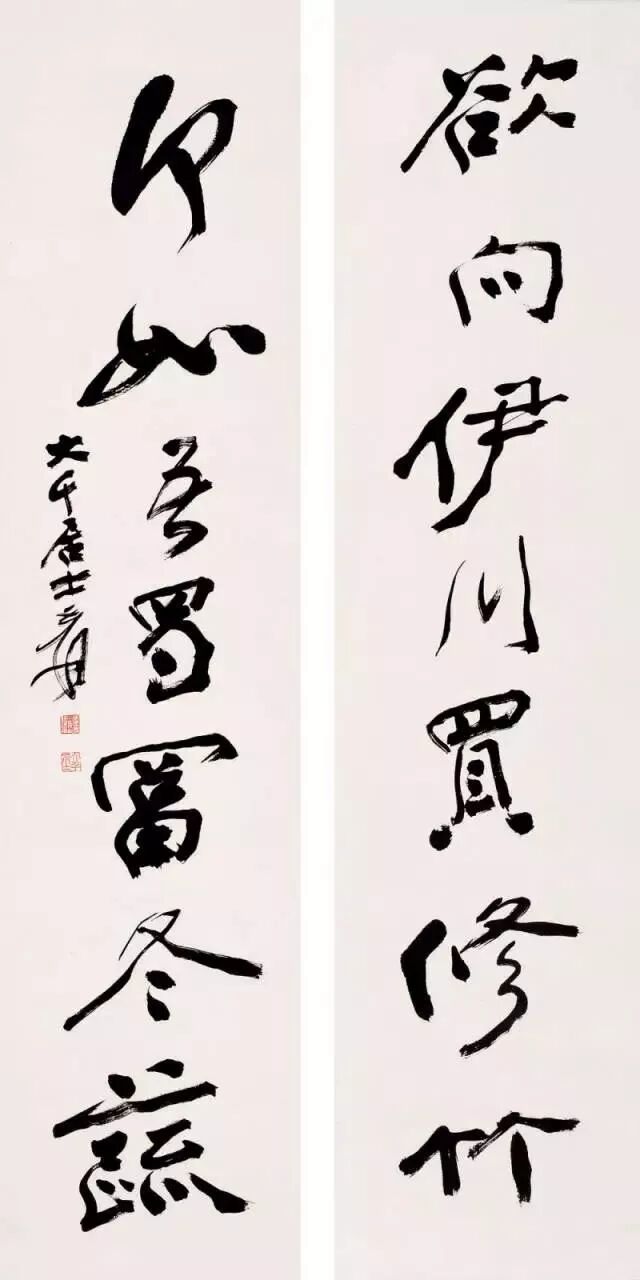 欲向伊川買修竹
如吾蜀富冬蔬
大千居士爰